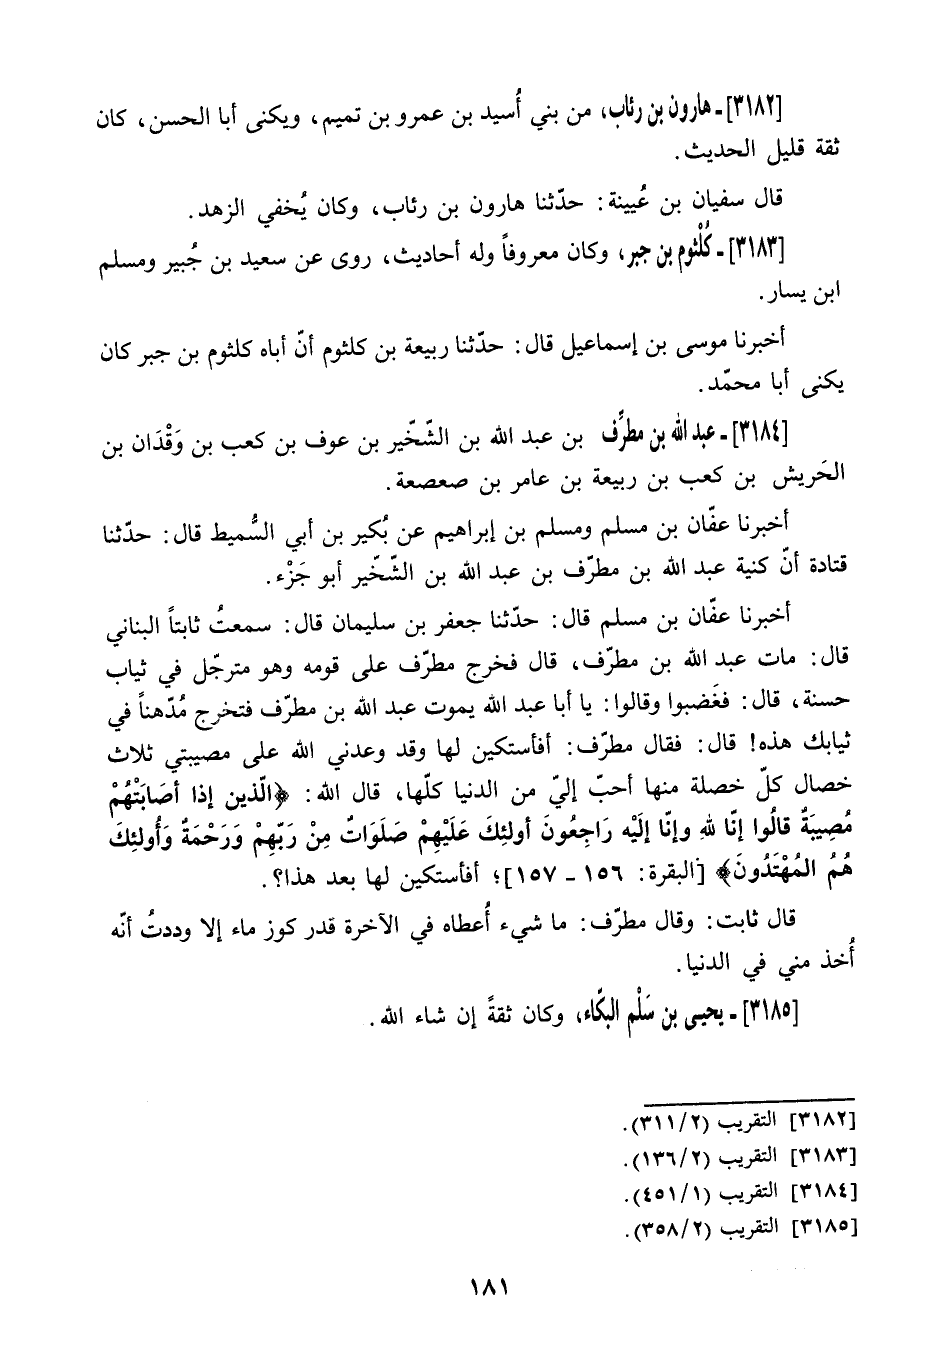 [٣١٨٢] ـ هارون بن رئاب، من بني أُسيد بن عمرو بن تميم، ويكنى أبا الحسن، كان
ثقة قليل الحديث.
قال سفيان بن عُيينة: حدّثنا هارون بن رئاب، وكان يُخفي الزهد.
[٣١٨٣] ـ كُلْثوم بن جبر، وكان معروفاً وله أحاديث، روى عن سعيد بن جُبير ومسلم
ابن يسار.
أخبرنا موسى بن إسماعيل قال: حدّثنا ربيعة بن كلثوم أنّ أباه كلثوم بن جبر كان
يكنى أبا محمّد.
[٣١٨٤] ـ عبد الله بن مطرِّف بن عبد الله بن الشّخّير بن عوف بن كعب بن وَقْدَان بن
الحَريش بن كعب بن ربيعة بن عامر بن صعصعة.
أخبرنا عفّان بن مسلم ومسلم بن إبراهيم عن بُكير بن أبي السُّميط قال: حدّثنا
قتادة أنّ كنية عبد الله بن مطرّف بن عبد الله بن الشّخّير أبو جَزْء.
أخبرنا عفّان بن مسلم قال: حدّثنا جعفر بن سليمان قال: سمعتُ ثابتاً البناني
قال: مات عبد الله بن مطرّف، قال فخرج مطرّف على قومه وهو مترجّل في ثياب
حسنة، قال: فغَضبوا وقالوا: يا أبا عبد الله يموت عبد الله بن مطرّف فتخرج مُدّهناً في
ثيابك هذه! قال: فقال مطرّف: أفأستكين لها وقد وعدني الله على مصيبتي ثلاث
خصال كلّ خصلة منها أحبّ إليّ من الدنيا كلّها، قال الله: ﴿الّذين إذا أصَابَتْهُمْ
مُصِيبَةٌ قالُوا إنّا لله وإنّا إلَيْه رَاجِعُونَ أولئِكَ عَلَيْهِمْ صَلَوَاتٌ مِنْ رَبّهِمْ وَرَحْمَةٌ وَأُولئِكَ
هُمُ المُهْتَدُونَ﴾ [البقرة: ١٥٦ ـ ١٥٧]؛ أفأستكين لها بعد هذا؟.
قال ثابت: وقال مطرّف: ما شيء أُعطاه في الآخرة قدر كوز ماء إلا وددتُ أنّه
أُخذ مني في الدنيا.
[٣١٨٥] ـ يحيى بن سَلْم البكّاء، وكان ثقةً إن شاء الله.
[٣١٨٢] التقريب (٣١١/٢).
[٣١٨٣] التقريب (١٣٦/٢).
[٣١٨٤] التقريب (٤٥١/١).
[٣١٨٥] التقريب (٣٥٨/٢).
١٨١